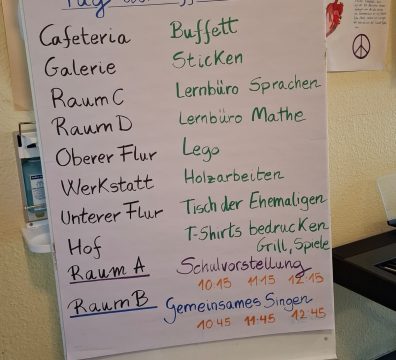 Tag der
Cafeteria Buffett
Galerie Sticken
Raum C Lernbüro Sprachen
Raum D Lernbüro Mathe
Oberer Flur Lego
Werkstatt Holzarbeiten
Unterer Flur Tisch der Ehemaligen
Hof T-Shirts bedrucken
Grill, Spiele
Raum A Schulvorstellung
10:15 11:15 12:15
Raum B Gemeinsames Singen
10:45 11:45 12:45